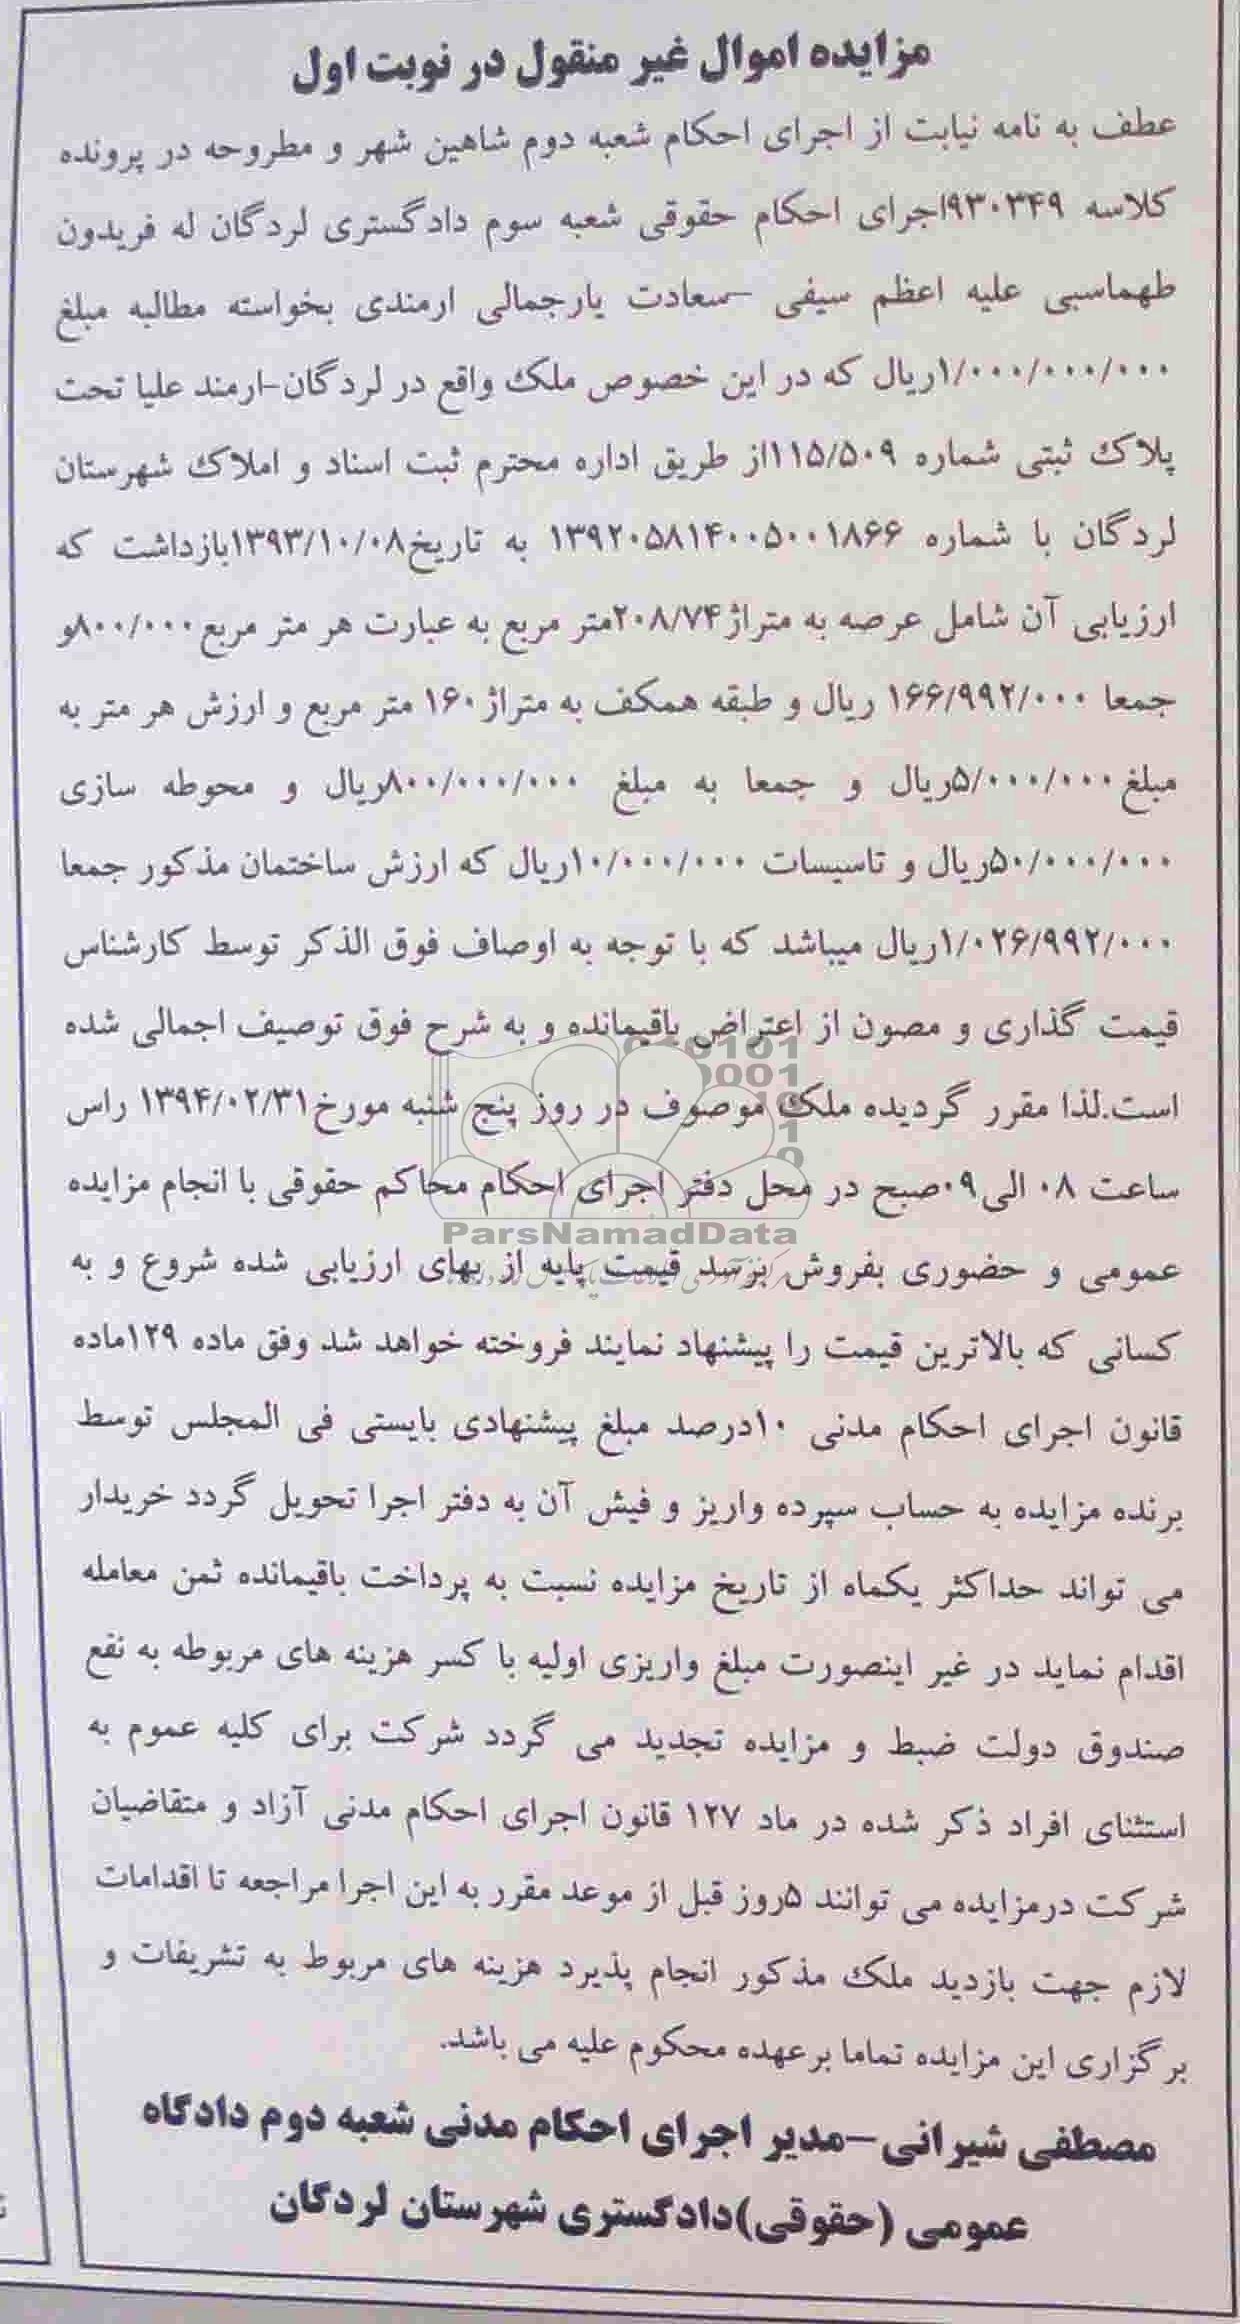 مزایده اموال غیر منقول در نوبت اول
عطف به نامه نیابت از اجرای احکام شعبه دوم شاهین شهر و مطروحه در پرونده
کلاسه ۹۳۰۳۴۹اجرای احکام حقوقی شعبه سوم دادگستری لردگان له فریدون
طهماسبی علیه اعظم سیفی –سعادت یارجمالی ارمندی بخواسته مطالبه مبلغ
۱/۰۰۰/۰۰۰/۰۰۰ریال که در این خصوص ملک واقع در لردگان-ارمند علیا تحت
پلاک ثبتی شماره ۱۱۵/۵۰۹از طریق اداره محترم ثبت اسناد و املاک شهرستان
لردگان با شماره ۱۳۹۲۰۵۸۱۴۰۰۵۰۰۱۸۶۶ به تاریخ۱۳۹۳/۱۰/۰۸بازداشت که
ارزیابی آن شامل عرصه به متراژ۲۰۸/۷۴متر مربع به عبارت هر متر مربع۸۰۰/۰۰۰و
جمعا ۱۶۶/۹۹۲/۰۰۰ ریال و طبقه همکف به متراژ۱۶۰ متر مربع و ارزش هر متر به
مبلغ۵/۰۰۰/۰۰۰ریال و جمعا به مبلغ ۸۰۰/۰۰۰/۰۰۰ریال و محوطه سازی
۵۰/۰۰۰/۰۰۰ریال و تاسیسات ۱۰/۰۰۰/۰۰۰ریال که ارزش ساختمان مذکور جمعا
۱/۰۲۶/۹۹۲/۰۰۰ریال میباشد که با توجه به اوصاف فوق الذکر توسط کارشناس
قیمت گذاری و مصون از اعتراض باقیمانده و به شرح فوق توصیف اجمالی شده
است.لذا مقرر گردیده ملک موصوف در روز پنج شنبه مورخ۱۳۹۴/۰۲/۳۱ راس
ساعت ۰۸ الی۰۹صبح در محل دفتر اجرای احکام محاکم حقوقی با انجام مزایده
ParsNamadData
عمومی و حضوری بفروش برسد قیمت پایه از بهای ارزیابی شده شروع و به
کسانی که بالاترین قیمت را پیشنهاد نمایند فروخته خواهد شد وفق ماده ۱۲۹ماده
قانون اجرای احکام مدنی ۱۰درصد مبلغ پیشنهادی بایستی فی المجلس توسط
برنده مزایده به حساب سپرده واریز و فیش آن به دفتر اجرا تحویل گردد خریدار
می تواند حداکثر یکماه از تاریخ مزایده نسبت به پرداخت باقیمانده ثمن معامله
اقدام نماید در غیر اینصورت مبلغ واریزی اولیه با کسر هزینه های مربوطه به نفع
صندوق دولت ضبط و مزایده تجدید می گردد شرکت برای کلیه عموم به
استثنای افراد ذکر شده در ماد ۱۲۷ قانون اجرای احکام مدنی آزاد و متقاضیان
شرکت درمزایده می توانند ۵روز قبل از موعد مقرر به این اجرا مراجعه تا اقدامات
لازم جهت بازدید ملک مذکور انجام پذیرد هزینه های مربوط به تشریفات و
برگزاری این مزایده تماما برعهده محکوم علیه می باشد.
مصطفی شیرانی–مدیر اجرای احکام مدنی شعبه دوم دادگاه
عمومی (حقوقی)دادگستری شهرستان لردگان